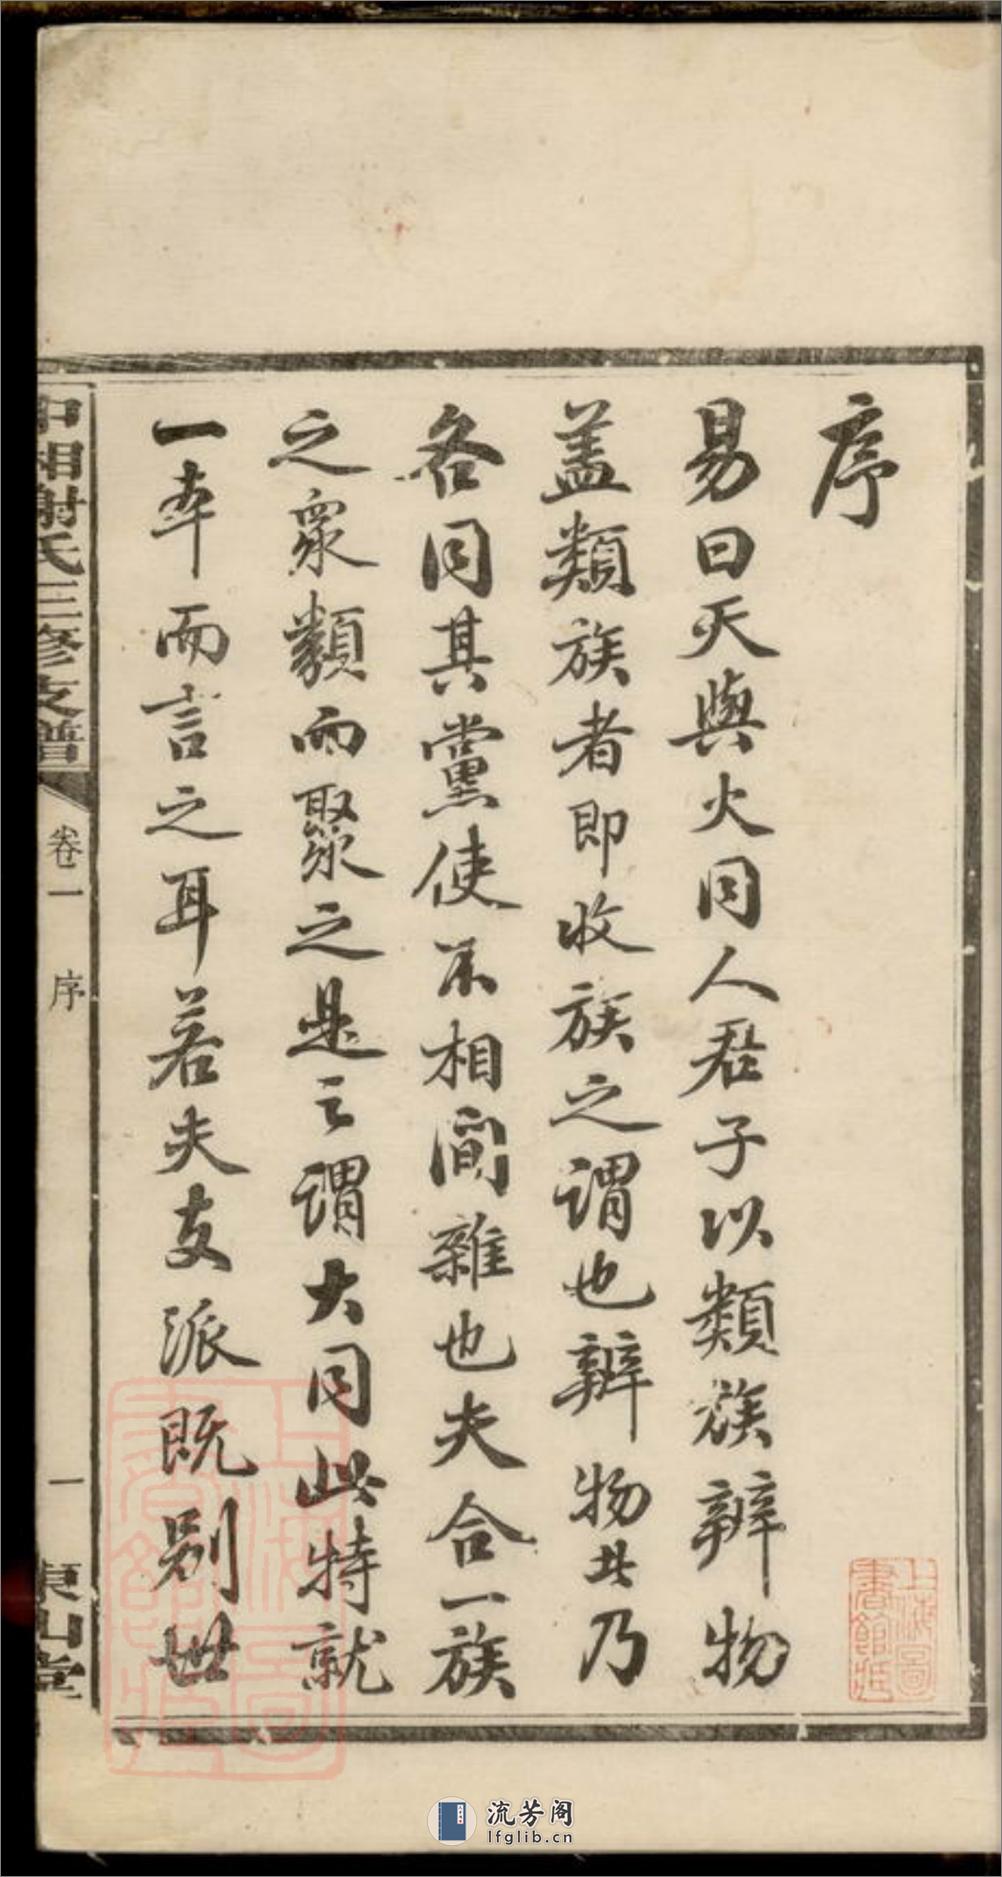 序
易曰天與火同人君子以類族辨物
蓋類族者即收族之謂也辨物此乃
各同其黨使不相間雜也夫合一族
之衆類而聚之是之謂大同此特就
一本而言之耳若夫支派既别世
中湘謝氏三修支譜
卷一 序
一
東山堂
上海圖書館藏
上海圖書館藏
流芳阁
lfglib.cn